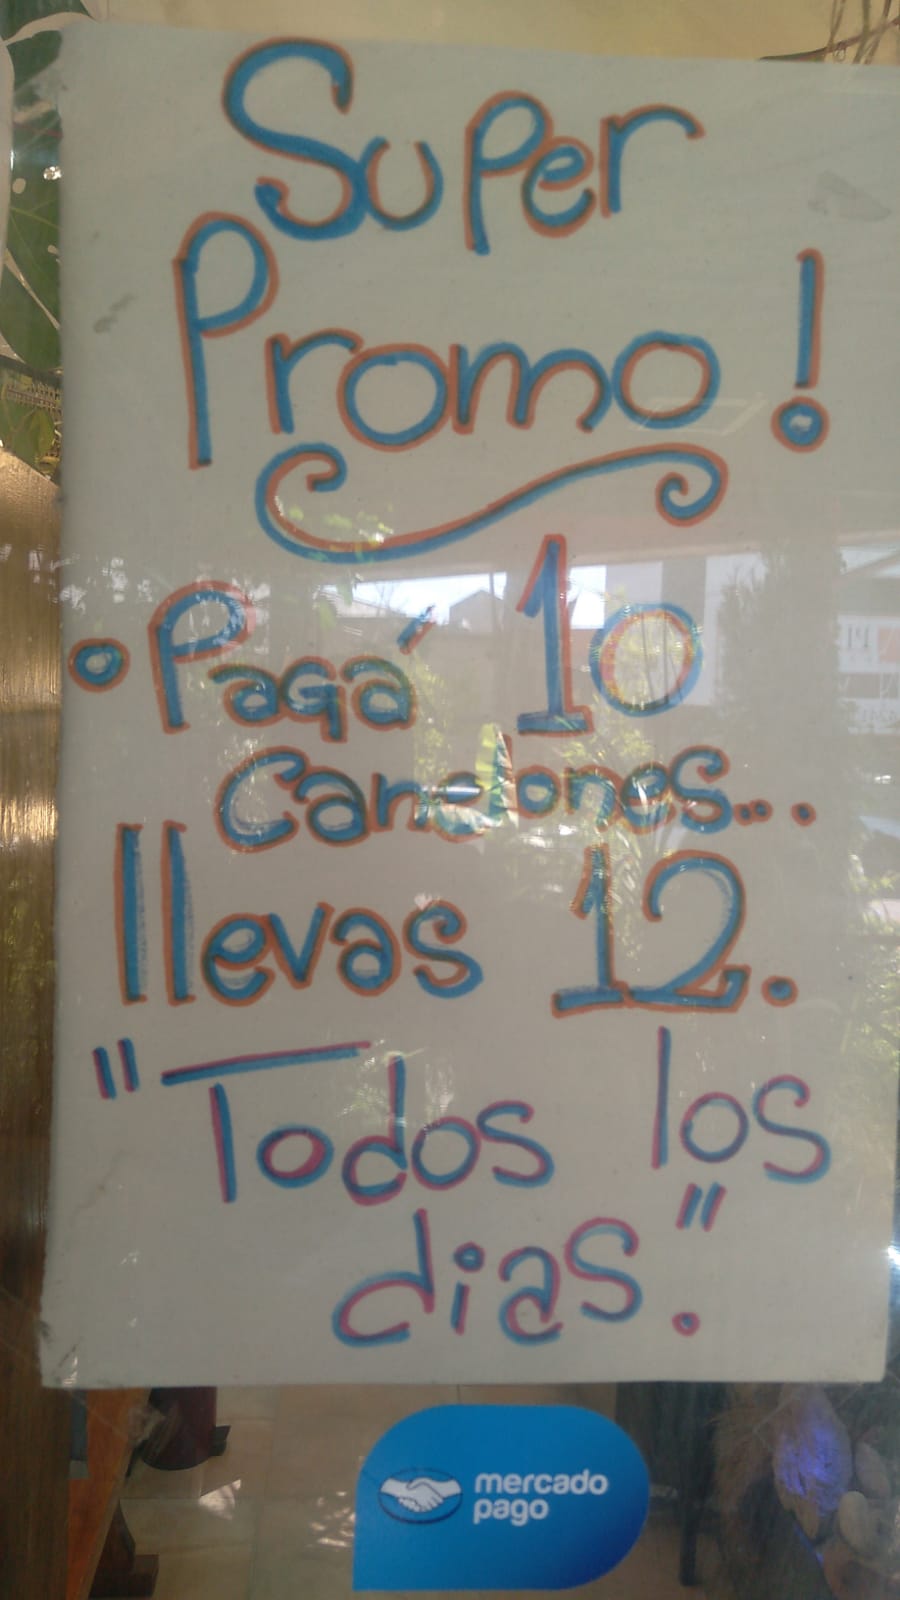 Super
Promo!
• Pagá 10
Canelones...
llevas 12.
"Todos los
dias."
mercado
pago